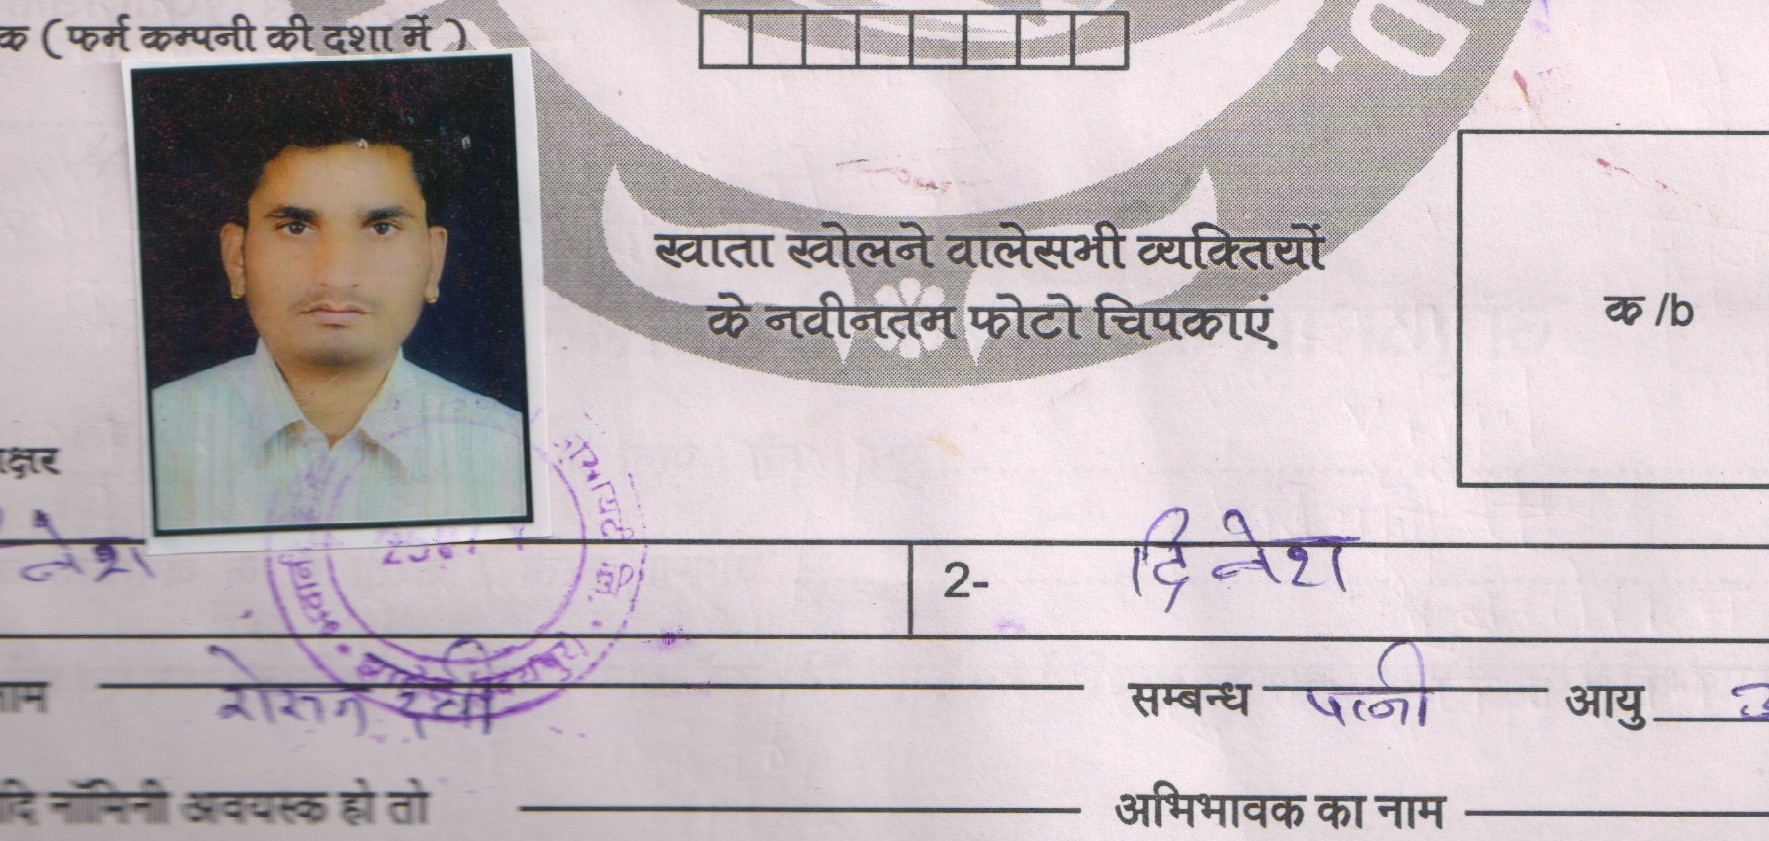 क ( फर्म कम्पनी की दशा में )
खाता खोलने वालेसभी व्यक्तियों
के नवीनतम फोटो चिपकाएं
क /b
क्षर
नेश
2- दिनेश
नाम देवी सम्बन्ध पत्नी आयु
दि नॉमिनी अवयस्क हो तो अभिभावक का नाम